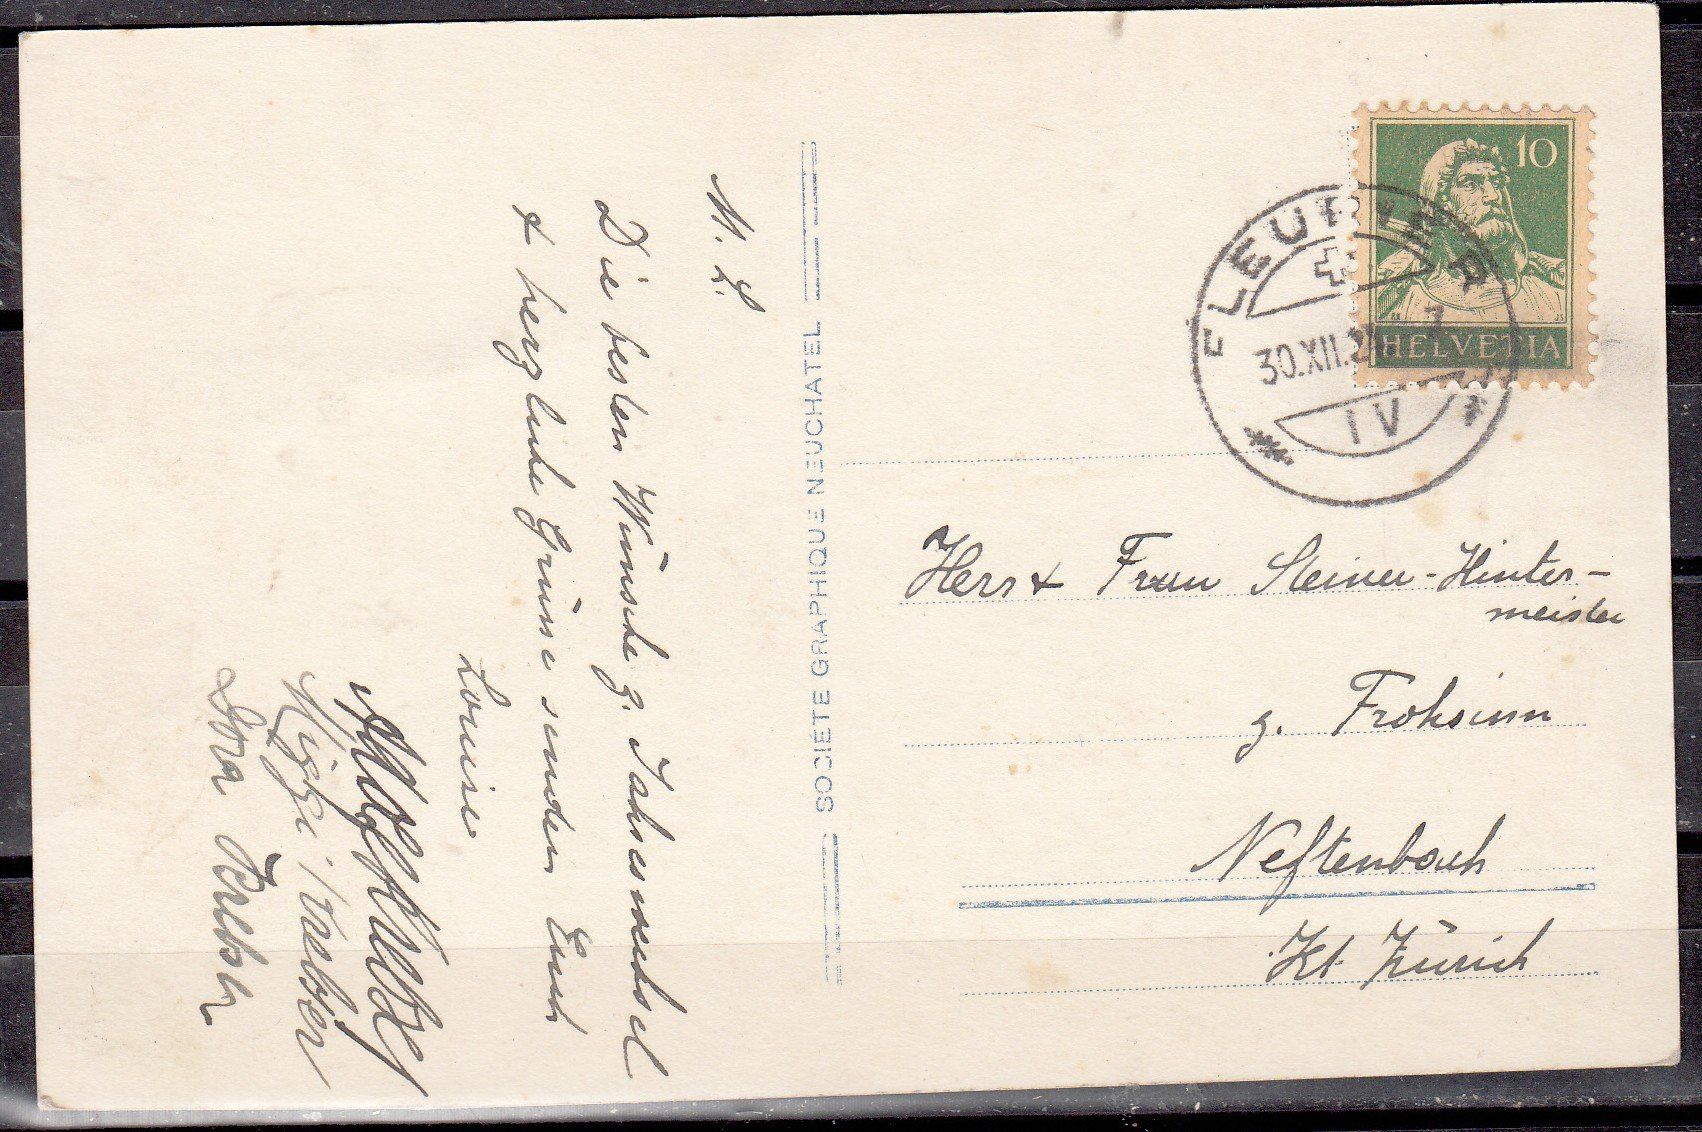 M. L.
Die besten Wünsche z. Jahreswechsel
& herzliche Grüsse senden Euch
Louise
Dora
SOCIÉTÉ GRAPHIQUE NEUCHATEL
10
HELVETIA
FLEURIER
30.XII.
IV
Herr & Frau Steiner-Hinter-
meister
z. Frohsinn
Neftenbach
Kt. Zürich